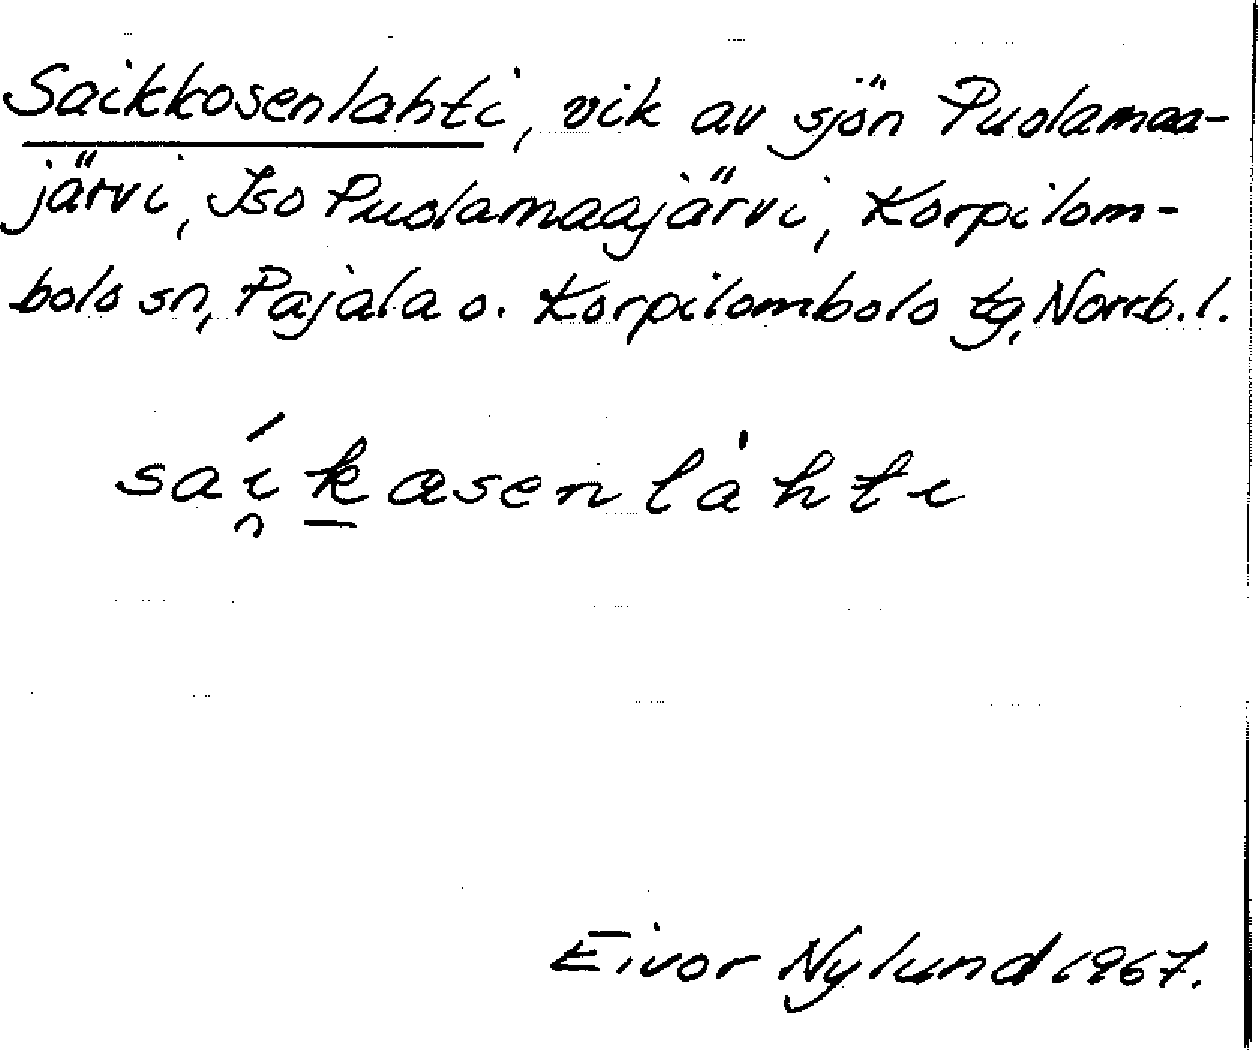 Saikkosenlahti, vik av sjön Puolamaa-
järvi, Iso Puolamaajärvi, Korpilom-
bolo sn, Pajala o. Korpilombolo tg, Norrb. l.
saí̯ḵasenlȧhti
Eivor Nylund 1967.